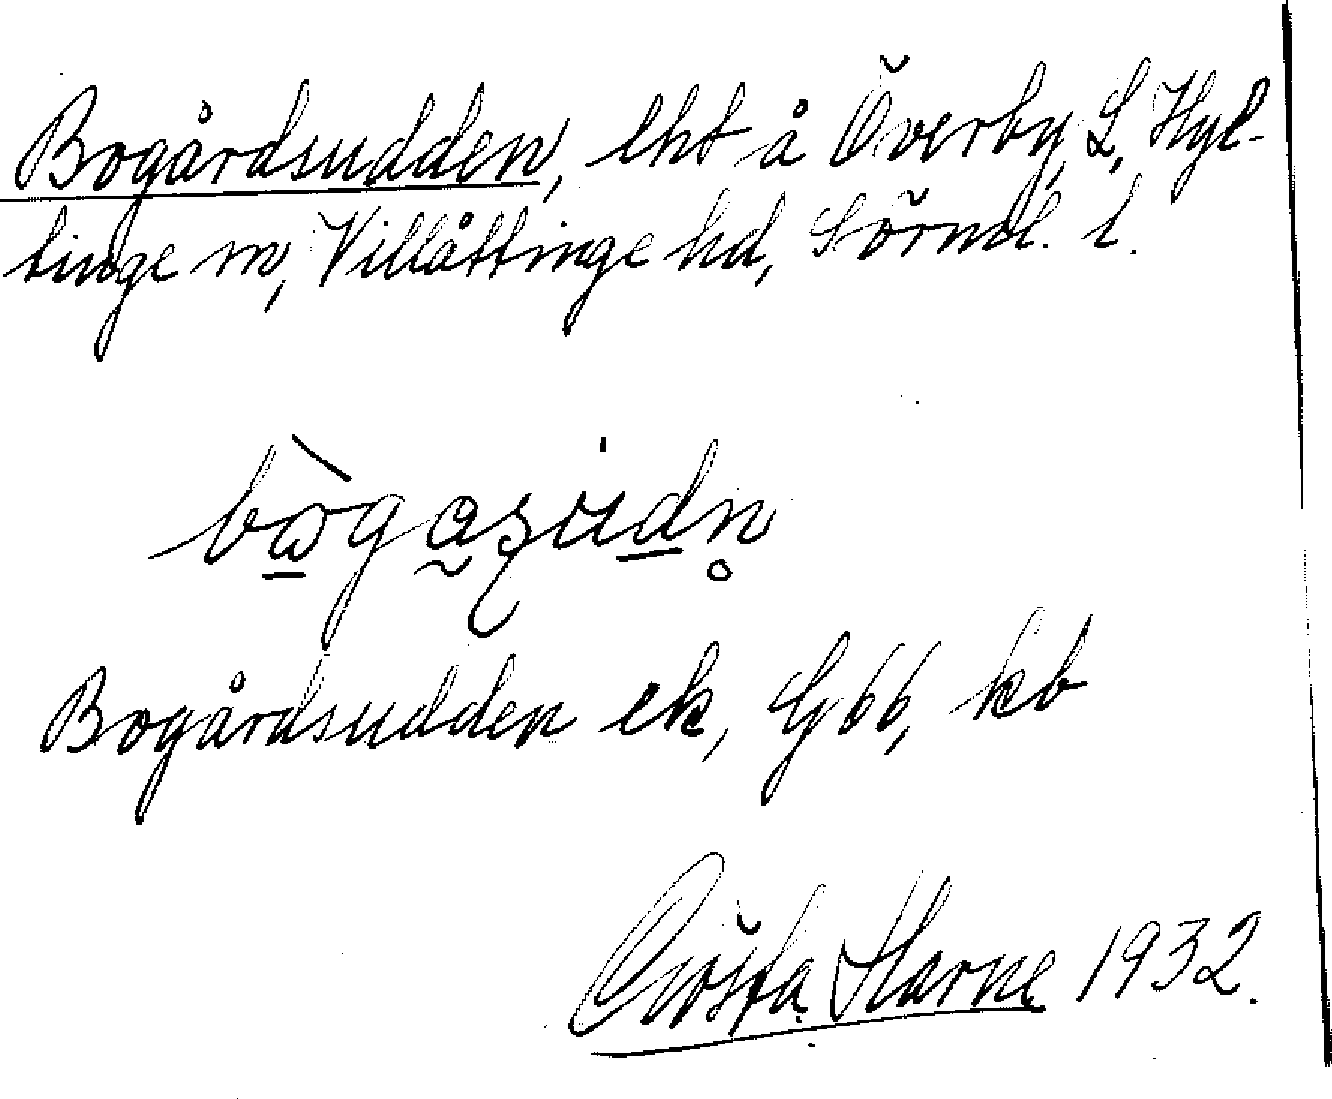 Bogårdsudden, lht å Överby, L, Hyl-
tinge sn, Villåttinge hd, Sörml. l.
Bogårdsudden ek, G 66, kb
Gösta Harne 1932.